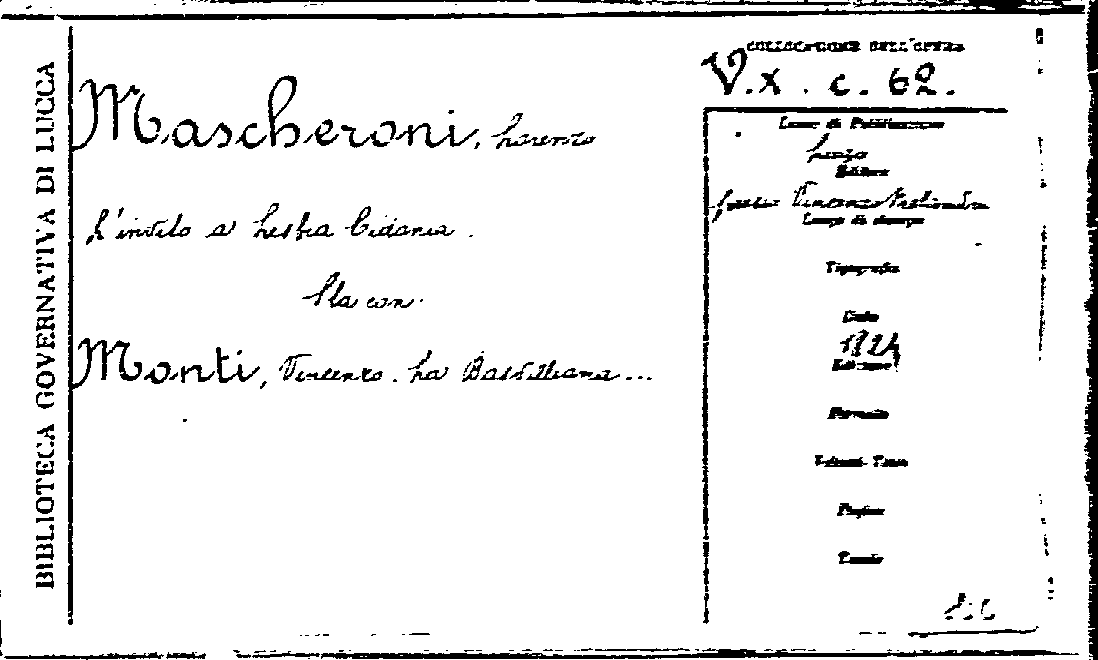 BIBLIOTECA GOVERNATIVA DI LUCCA
Mascheroni, Lorenzo
L'invito a Lesbia Cidonia.
Sta con:
Monti, Vincenzo. La Bassvilliana...
COLLOCAZIONE DELL'OPERA
V. X. c. 62.
Luogo di Pubblicazione
Editore
Vincenzo
Luogo di stampa
Tipografia
Data
1824
Edizione
Formato
Volumi-Tomi
Pagine
Tavole